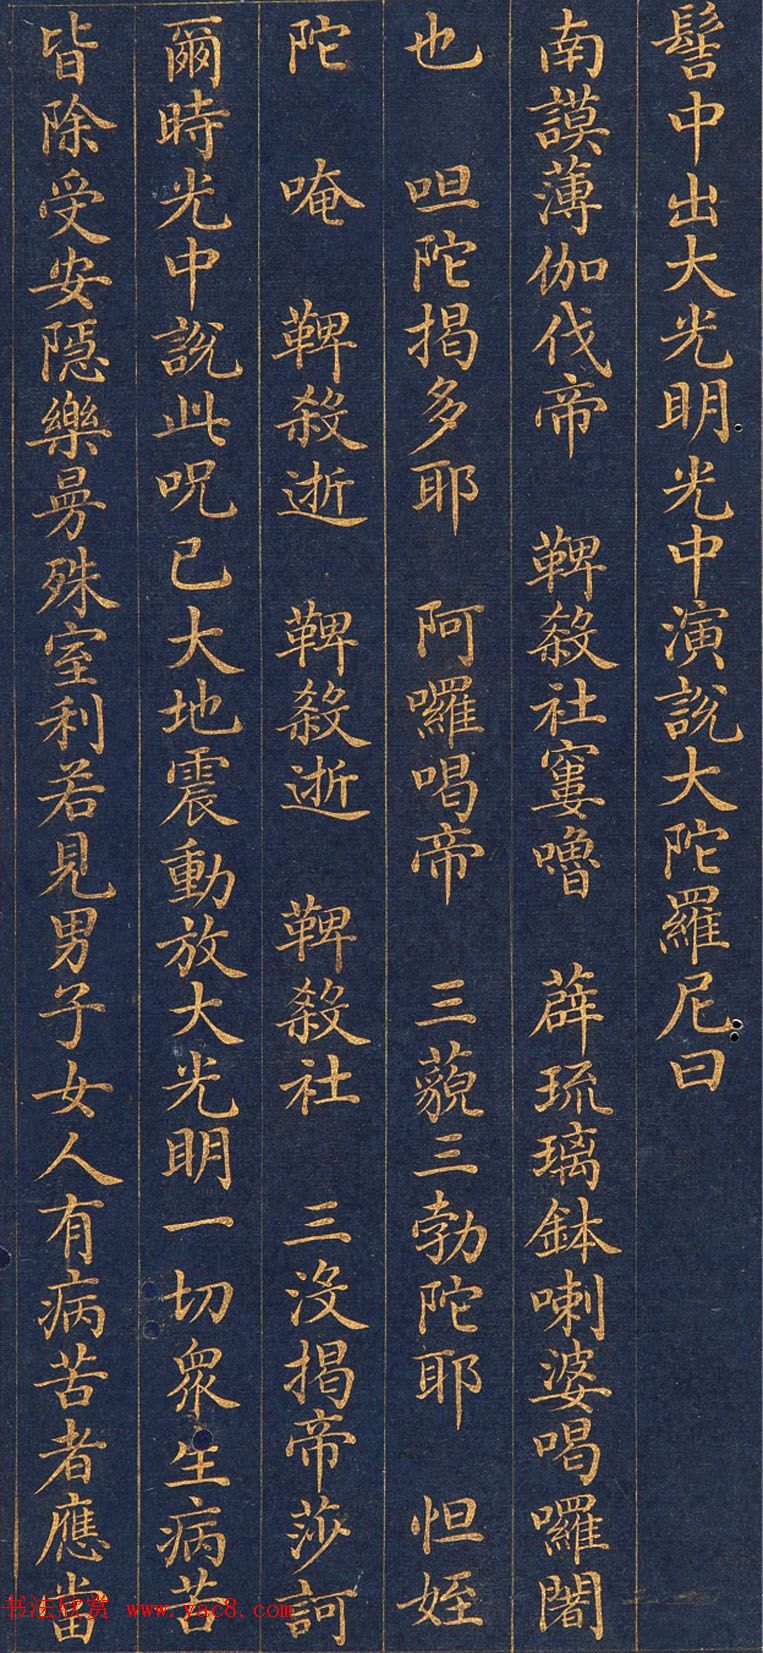 髻中出大光明光中演說大陀羅尼曰
南謨薄伽伐帝 鞞殺社窶嚕 薜琉璃鉢喇婆喝囉闍
也 呾陀揭多耶 阿囉喝帝 三藐三勃陀耶 怛姪
陀 唵 鞞殺逝 鞞殺逝 鞞殺社 三沒揭帝莎訶
爾時光中說此呪已大地震動放大光明一切衆生病苦
皆除受安隱樂曼殊室利若見男子女人有病苦者應當
书法欣赏 www.yac8.com